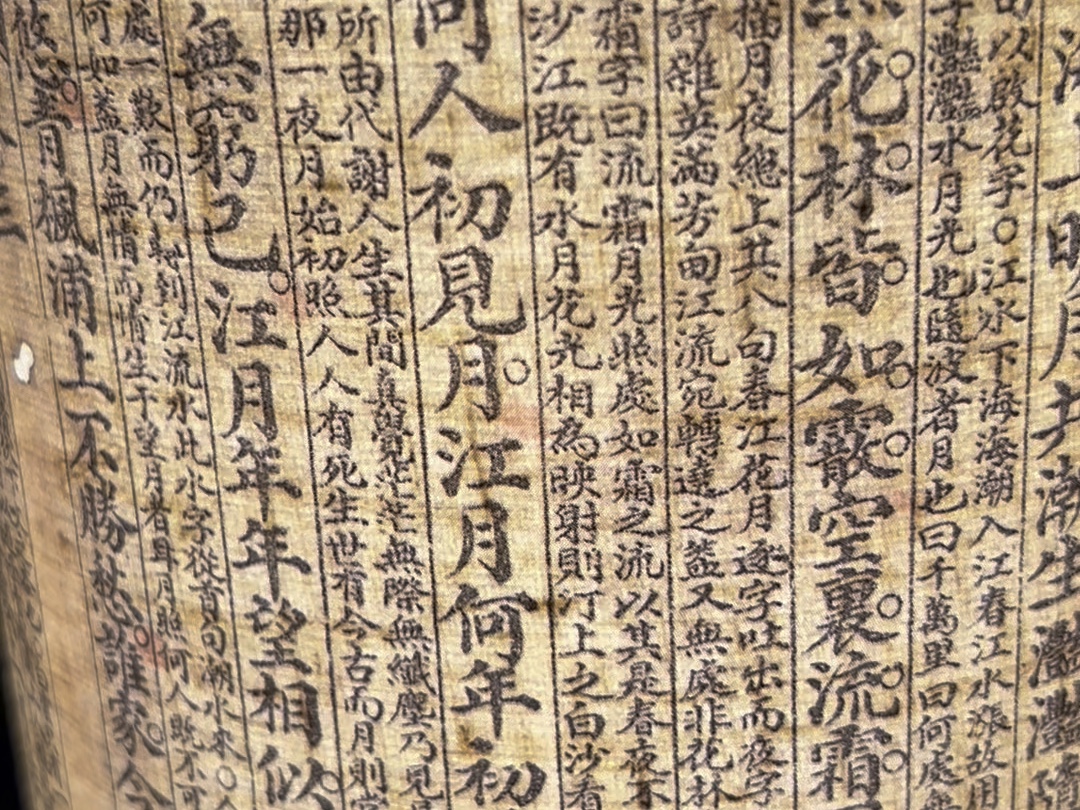 明月共潮生灩灩隨
以啟花字○江水下海海潮入江春江水漲故用
字灩灩水月光也隨波者月也曰千萬里曰何處
照花林皆如霰空裏流霜
描月夜總上共八句春江花月逐字吐出而夜字
詩雜英滿芳甸江流宛轉遶之盛又無處非花林
霜字曰流霜月光照處如霜之流以其是春夜不
沙江既有水月花光相為映射則汀上之白沙看
何人初見月江月何年初
所由代謝人生其間真覺茫茫無際無纖塵乃見
那一夜月始初照人人有死生世有今古而月則
無窮已江月年年望相似
處一歎而仍歸到江流水此水字從首句潮水來○
何如蓋月無情而情生于望月者耳月照何人既不可
悠悠青楓浦上不勝愁誰家今